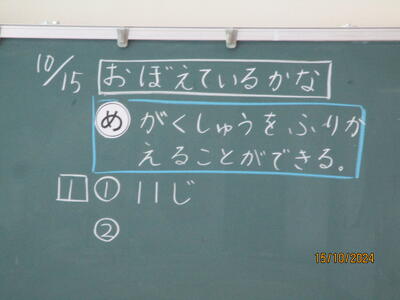 10/15 おぼえているかな
め がくしゅうをふりか
えることができる。
1 ① 11じ
②
15/10/2024